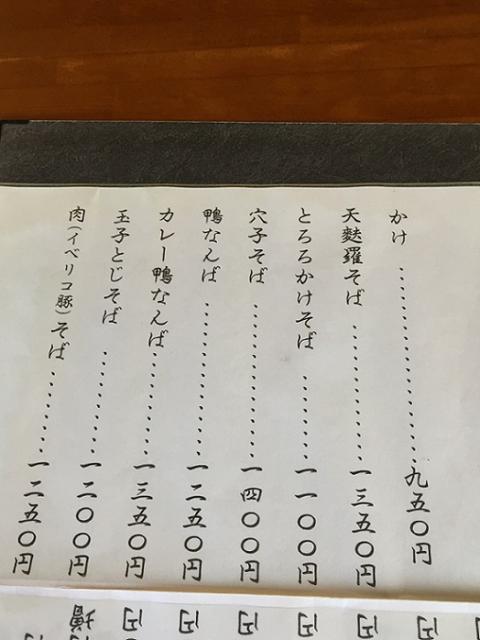 かけ ..................九五〇円
天麩羅そば ............一三五〇円
とろろかけそば ..........一一〇〇円
穴子そば ..............一四〇〇円
鴨なんば ..............一二五〇円
カレー鴨なんば ..........一三五〇円
玉子とじそば ...........一二〇〇円
肉(イベリコ豚)そば .......一二五〇円